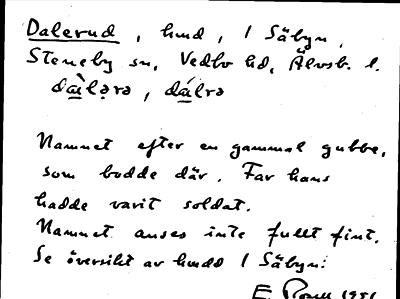 Dalerud, hmd, i Säbyn,
Steneby sn, Vedbo hd, Älvsb. l.
dà̤lərə, dálrə
Namnet efter en gammal gubbe,
som bodde där. Far hans
hadde varit soldat.
Namnet anses inte fullt fint.
Se översikt av hmdd i Säbyn.
E 1951